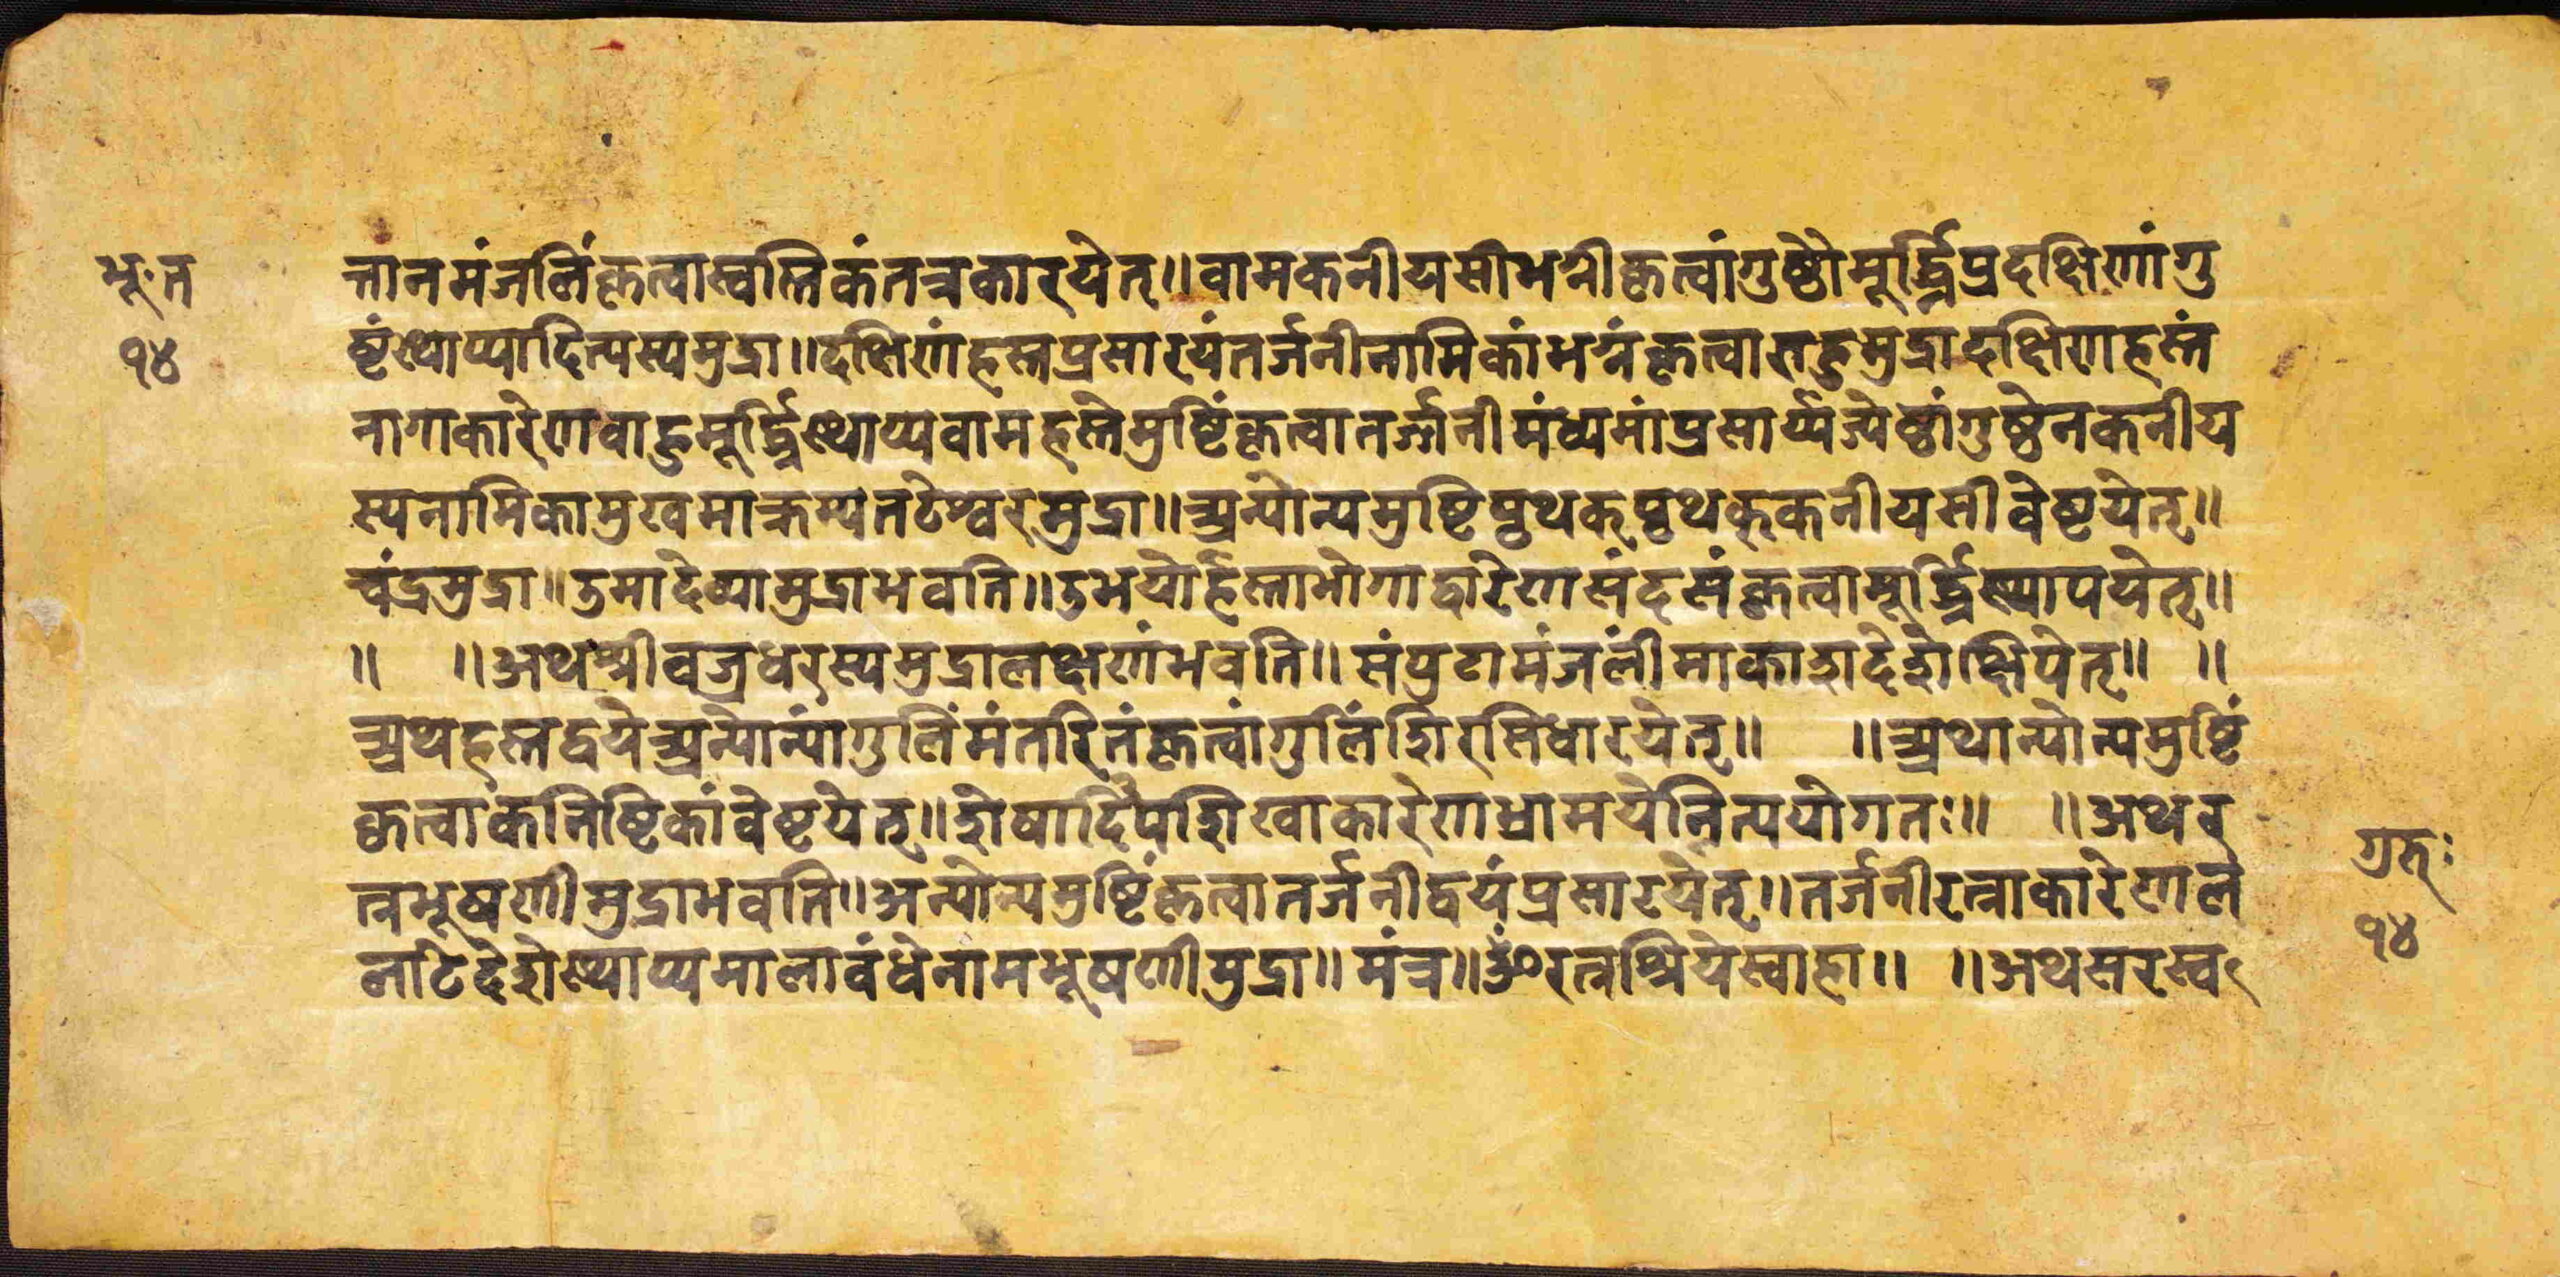 भूःत
१४
त्तानमंजलिंकृत्वास्वस्तिकंतत्रकारयेत्॥वामकनीयसीभग्नीकृत्वांगुष्ठौमूर्द्ध्निप्रदक्षिणांगु
ष्टंस्थाप्यादित्यस्यमुद्रा॥दक्षिणंहस्तप्रसारयंतर्जनीनामिकांभग्नंकृत्वाराहुमुद्रादक्षिणहस्तं
नागाकारेणवाहुमूर्द्ध्निस्थाप्यवामहस्तेमुष्टिंकृत्वातर्जनीमंध्यमांप्रसार्य्यज्येष्ठांगुष्ठेनकनीय
स्यनामिकामुखमाक्रम्यनटेश्वरमुद्रा॥अन्योन्यमुष्टिपृथक्पृथक्कनीयसीवेष्टयेत्॥
चंद्रमुद्रा॥उमादेव्यामुद्राभवति॥उभयोर्हस्ताभोगाद्वारेणसंदसंकृत्वामूर्द्ध्निस्थापयेत्॥
॥ ॥अथश्रीवज्रधरस्यमुद्रालक्षणंभवति॥संपुटामंजलींमाकाशदेशेक्षिपेत्॥ ॥
अथहस्तद्वयेअन्योन्यांगुलिंमंतरितंकृत्वांगुलिंशिरसिधारयेत्॥ ॥अथान्योन्यमुष्टिं
कृत्वाकनिष्टिकांवेष्टयेत्॥शेषादिपशिखाकारेणभ्रामयेन्नित्ययोगतः॥ ॥अथर
त्नभूषणीमुद्राभवति॥अन्योन्यमुष्टिंकृत्वातर्जनीद्वयंप्रसारयेत्॥तर्जनीरत्नाकारेणल
लाटेदेशेस्थाप्यमालावंधेनामभूषणीमुद्रा॥मंत्र॥ॐरत्नश्रियेस्वाहा॥ ॥अथसरस्व
ग्रुहः
१४